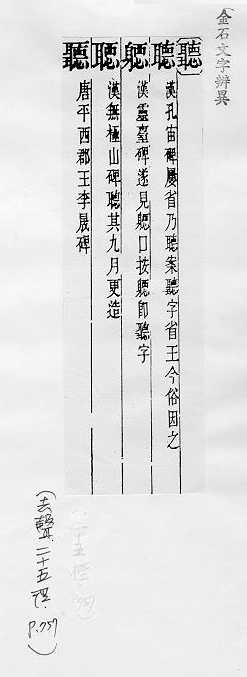 金石文字辨異
聽
聽漢孔宙碑屢省乃聽案聽字省王今俗因之
漢靈臺碑遂見聽口按聽卽聽字
聽漢無極山碑聽其九月更造
聽唐平西郡王李晟碑
(去聲二十五徑 P.757)